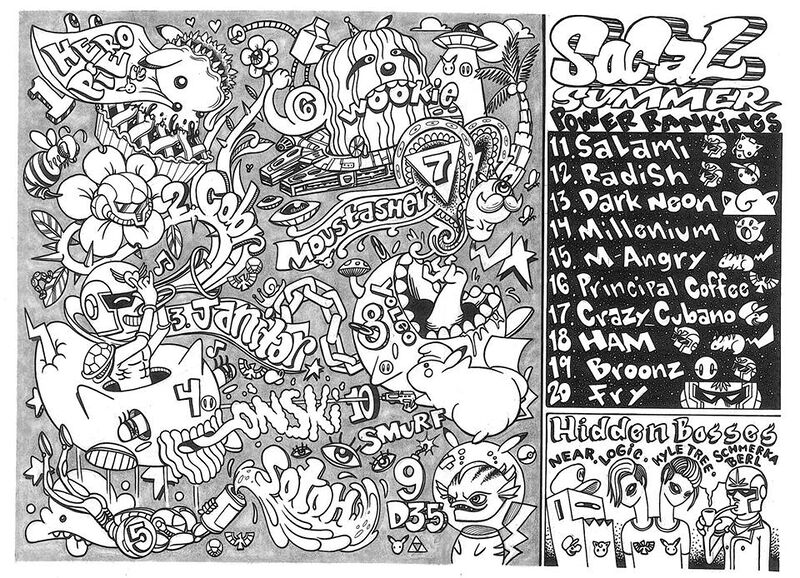 1 HERO PIE
2. Cobr
3. Jandlor
4 ONSKI
5 Sotoh
6 WOOKIE
7 MOUSTASHEY
8
9 D35
10 SMURF
SoCaL
SUMMER
POWER RANKINGS
11 Salami
12. Radish
13. Dark Neon
14 Millenium
15 M-Angry
16 Principal Coffee
17 Crazy Cubano
18 HAM
19 Broonz
20 Fry
Hidden Bosses
NEAR, LOGIC, KYLE TREE, SCHMERKA BERL